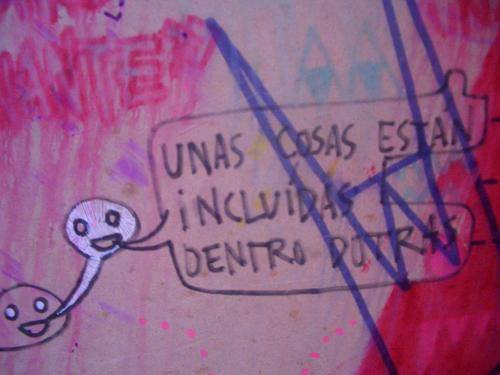 ANTE
UNAS COSAS ESTAN
iNCLUÍDAS
DENTRO DOTRAS